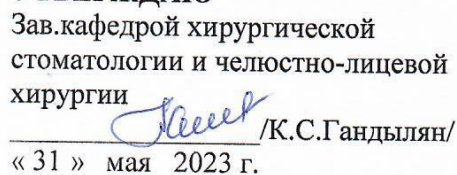 Зав.кафедрой хирургической
стоматологии и челюстно-лицевой
хирургии
/К.С.Гандылян/
« 31 » мая 2023 г.